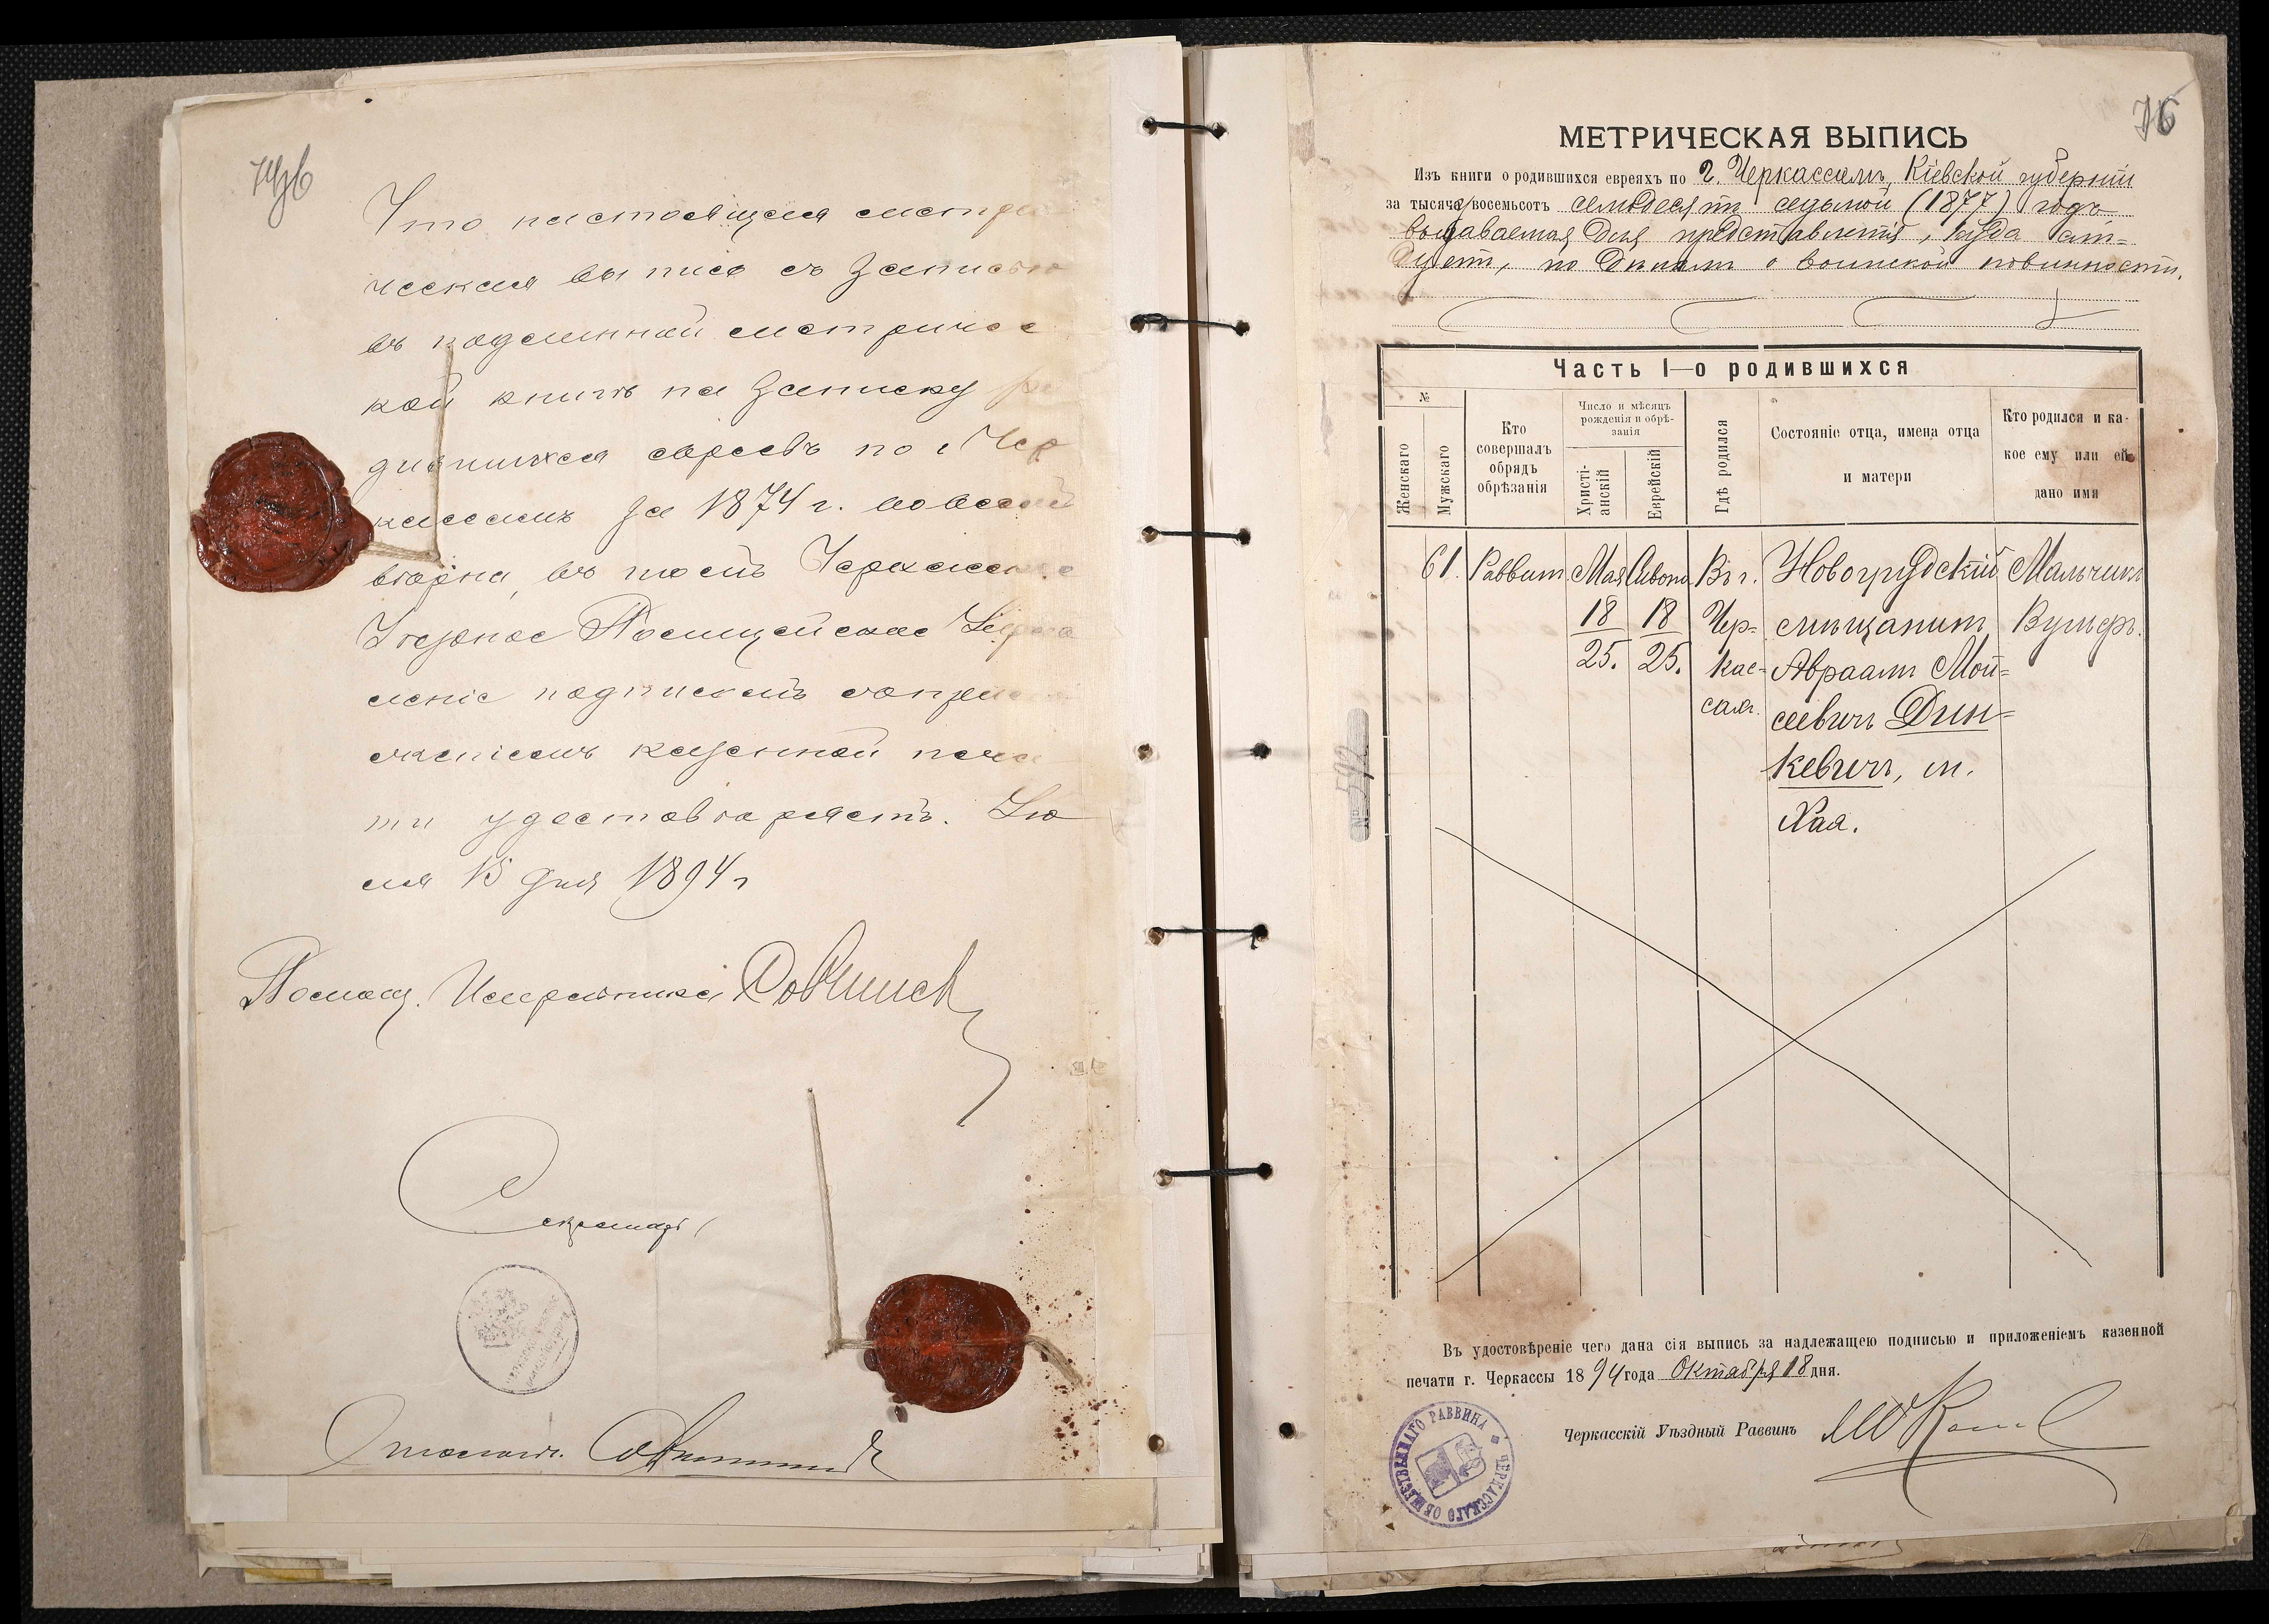 Что настоящая метри
ческая выпись съ записью
въ подлинной метричес
кой книгѣ на записку ро
дившихся евреевъ по г. Чер
кассамъ за 1874 г. во всемъ
вѣрна, въ томъ Черкасское
Уѣздное Полицейское Управ
леніе подписомъ съ прило
женіемъ казенной печа
ти удостовѣряетъ. Iю
ля 15 дня 1894 г
Помощ. Исправника
Секретарь
76
МЕТРИЧЕСКАЯ ВЫПИСЬ
Изъ книги о родившихся евреяхъ по г. Черкассамъ, Кіевской губерніи
за тысяча восемьсотъ семьдесятъ седьмой (1877) годъ
выдаваемая для представленія, куда слѣ=
дуетъ, по дѣламъ о воинской повинности.
Часть I—о родившихся
№
Женскаго
Мужскаго
Кто совершалъ обрядъ обрѣзанія
Число и мѣсяцъ рожденія и обрѣ-занія
Христі-анскій
Еврейскій
Гдѣ родился
Состояніе отца, имена отца и матери
Кто родился и ка-кое ему или ей дано имя
61. Раввин. Мая Сивона Въ г. Новогрудскій Мальчикъ
18 18 Чер= мѣщанинъ Вульфъ.
25. 25. кас= Авраамъ Мой=
сахъ. сеевичъ Дин=
кевичъ, м.
Хая.
№ 592
Въ удостовѣреніе чего дана сія выпись за надлежащею подписью и приложеніемъ казенной
печати г. Черкассы 1894 года Октября 18 дня.
Черкасскій Уѣздный Раввинъ
ЧЕРКАССКАГО ОБЩЕСТВЕННАГО РАВВИНА